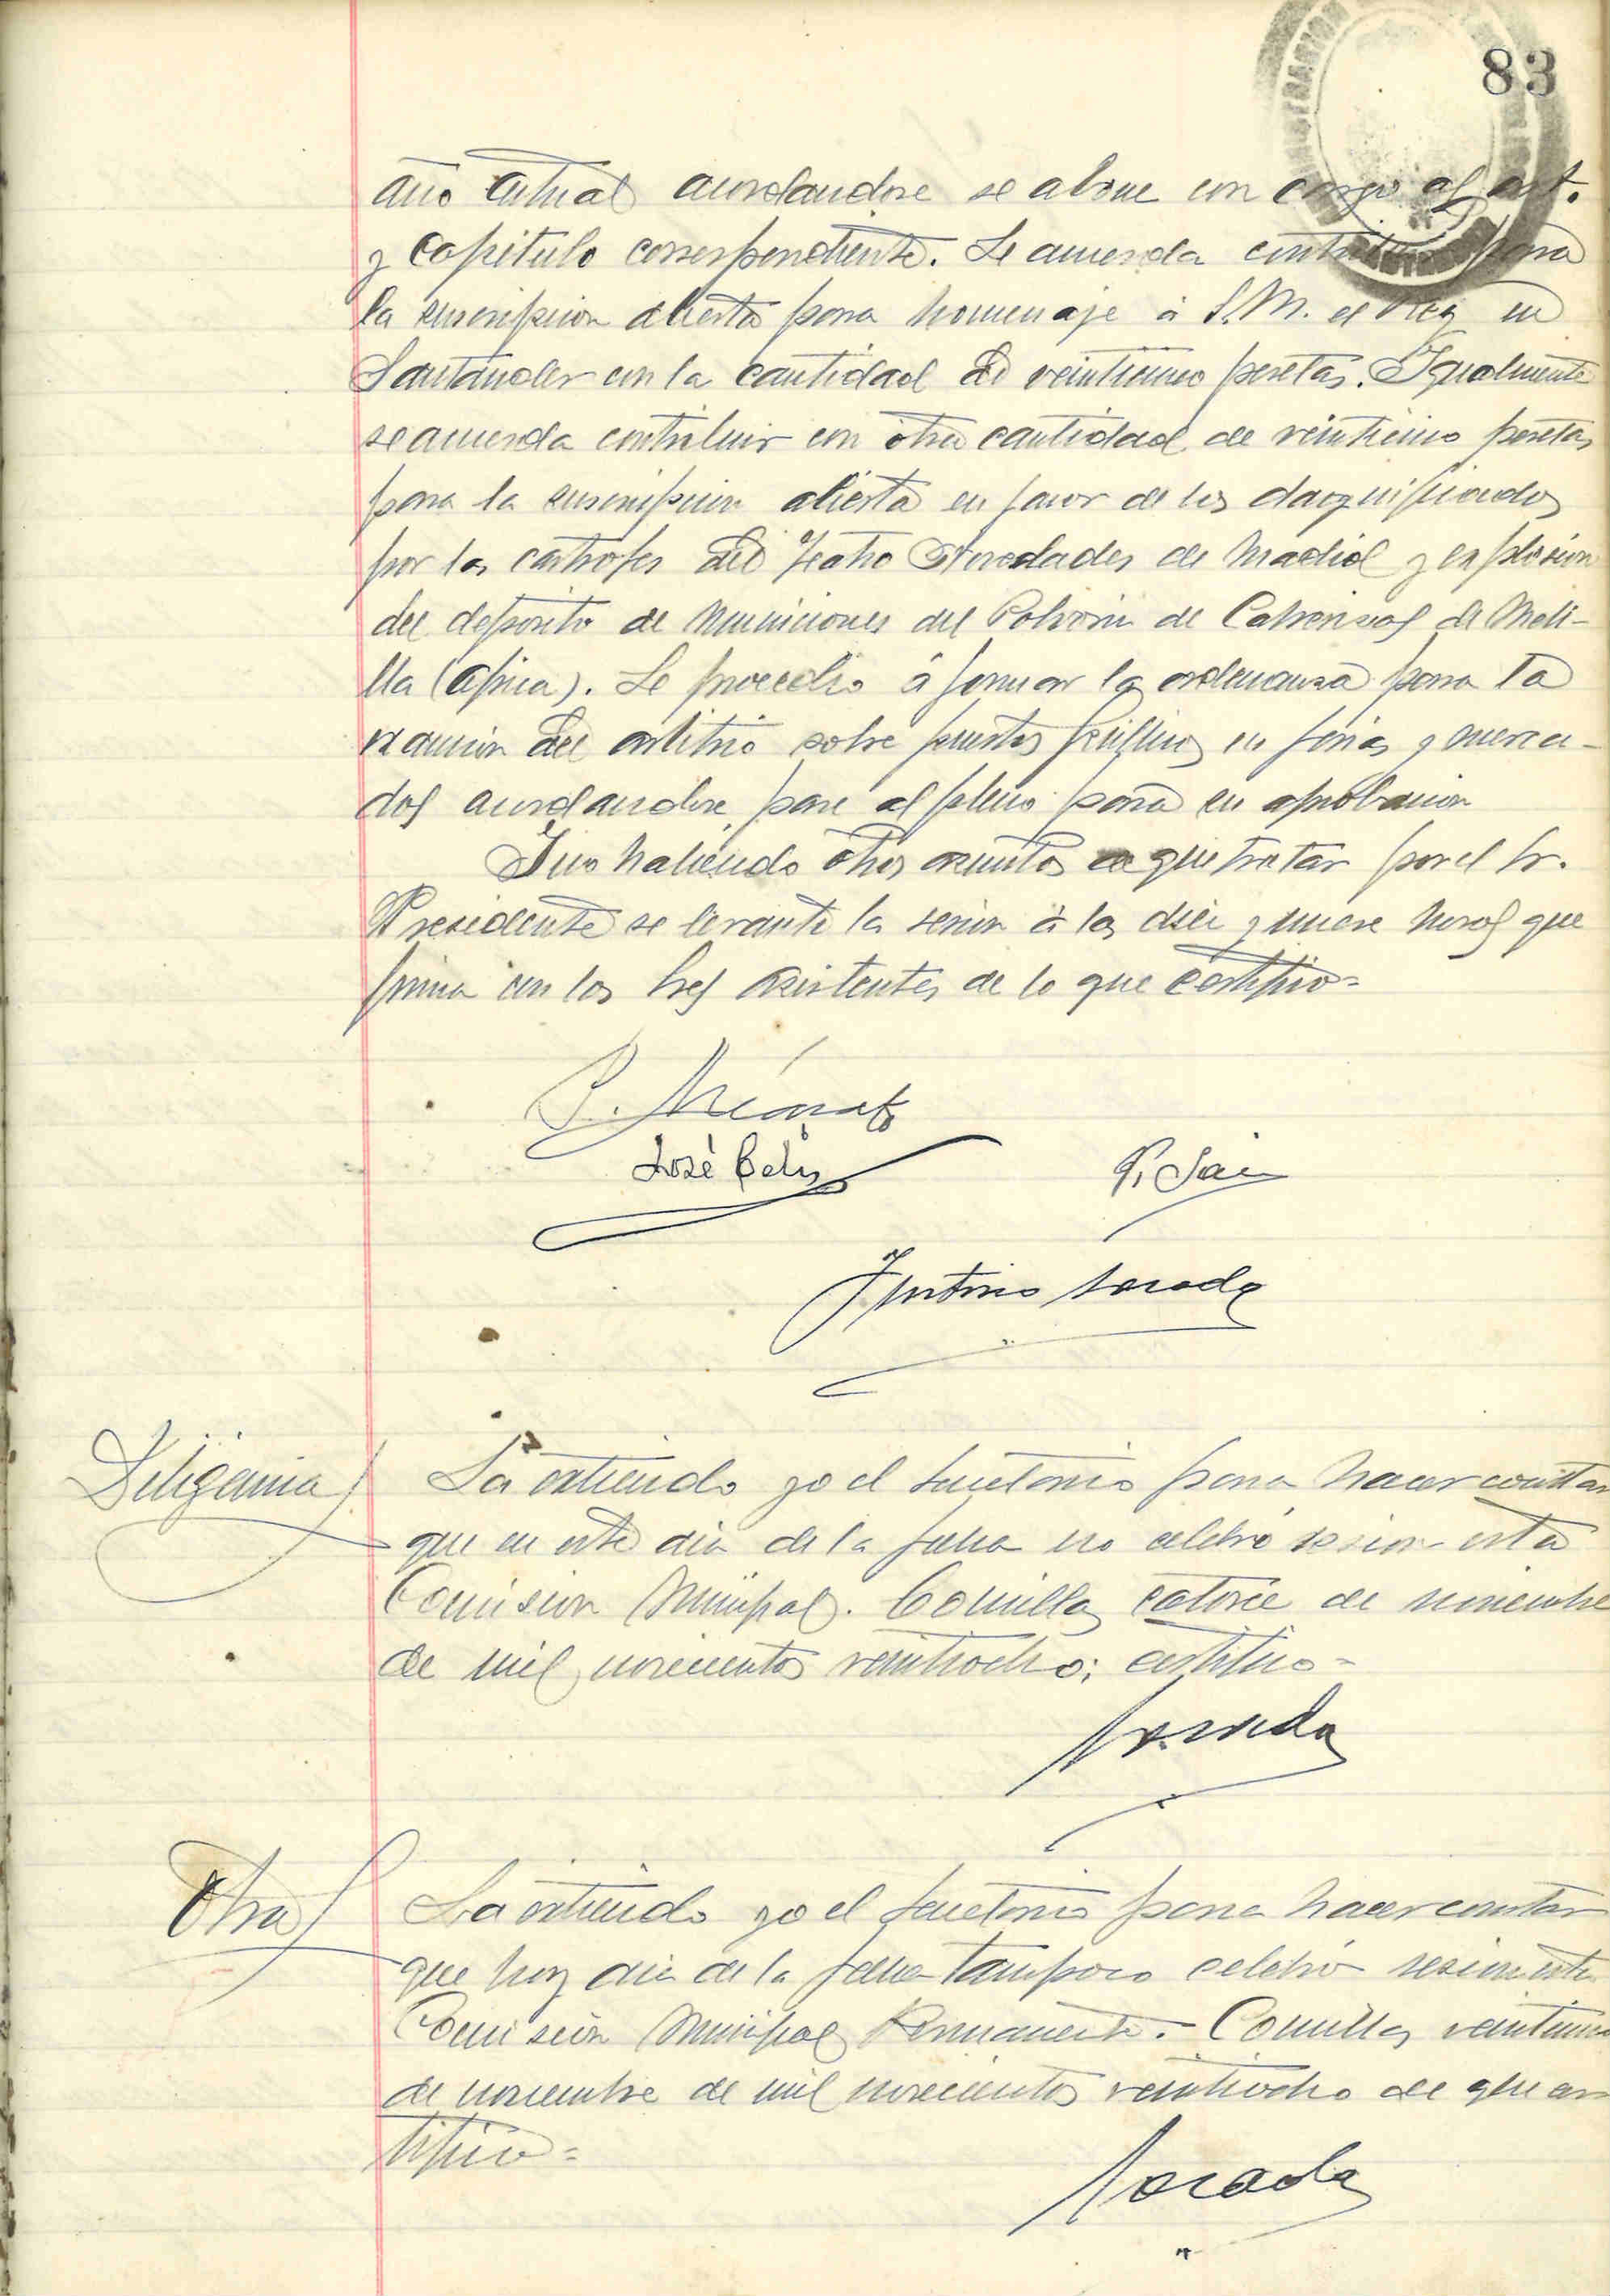 83
año actual acordandose se abone con cargo al art.
y capitulo correspondiente. Se acuerda contribuir para
la suscripcion abierta para homenaje á S.M. el Rey en
Santander con la cantidad de veinticinco pesetas. Igualmente
se acuerda contribuir con otra cantidad de veinticinco pesetas
para la suscripcion abierta en favor de los dagnificados
por las catastrofes del Teatro Novedades de Madrid y explosion
del deposito de municiones del Polvorin de Cabrerizas de Meli-
lla (Africa). Se procedio á formar la ordenanza para la
exaccion del arbitrio sobre puestos publicos en ferias y merca-
dos acordandose pase al pleno para su aprobacion
Y no habiendo otros asuntos de que tratar por el Sr.
Presidente se levantó la sesion á las diez y nueve horas que
firma con los Sres asistentes de lo que certifico=
José Celis
P. Sai
Diligencia
La extiendo yo el Secretario para hacer constar
que en este dia de la fecha no celebró sesion esta
Comision Municipal. Comillas catorce de noviembre
de mil novecientos veintiocho; certifico=
Otra
La extiendo yo el Secretario para hacer constar
que hoy dia de la fecha tampoco celebró sesion esta
Comision Municipal Permanente. Comillas veintiuno
de noviembre de mil novecientos veintiocho de que cer
tifico=